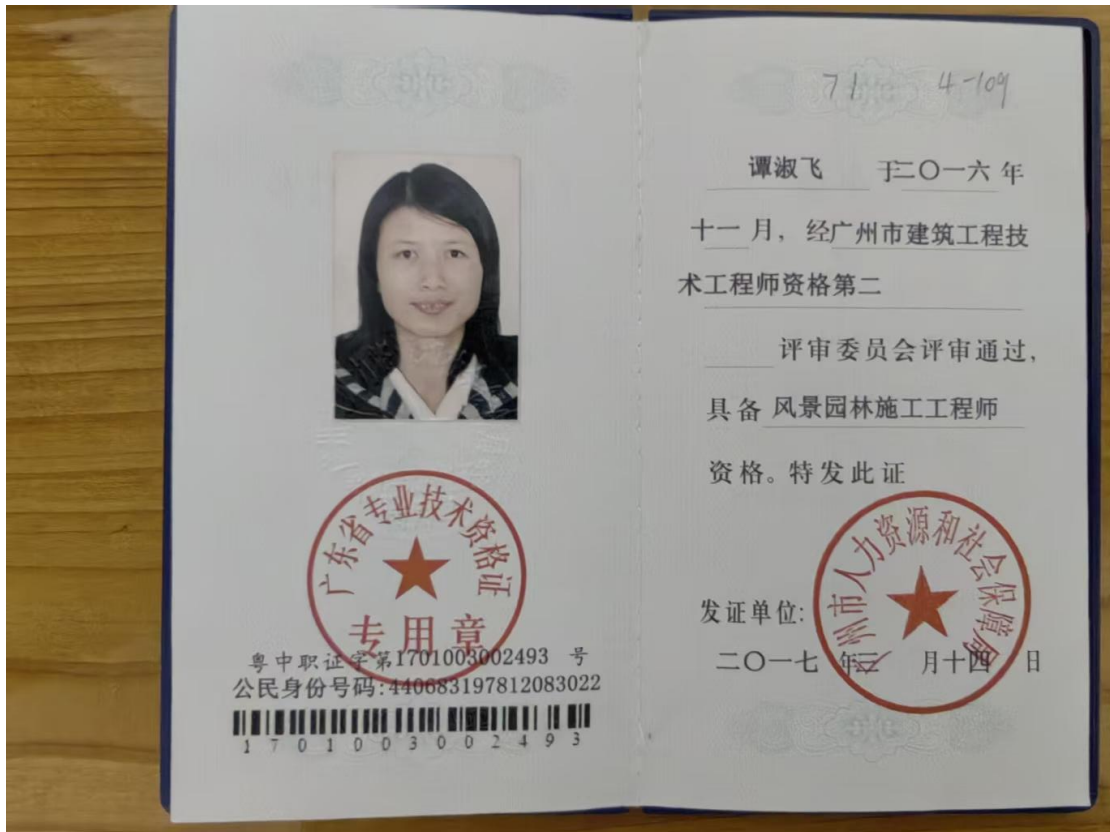 广东省专业技术资格证
专用章
粤中职证字第1701003002493 号
公民身份号码:440683197812083022
1701003002493
71 4-109
谭淑飞 于二〇一六年
十一月，经广州市建筑工程技
术工程师资格第二
评审委员会评审通过，
具备 风景园林施工工程师
资格。特发此证
广州市人力资源和社会保障局
发证单位:
二〇一七 年二 月十四 日